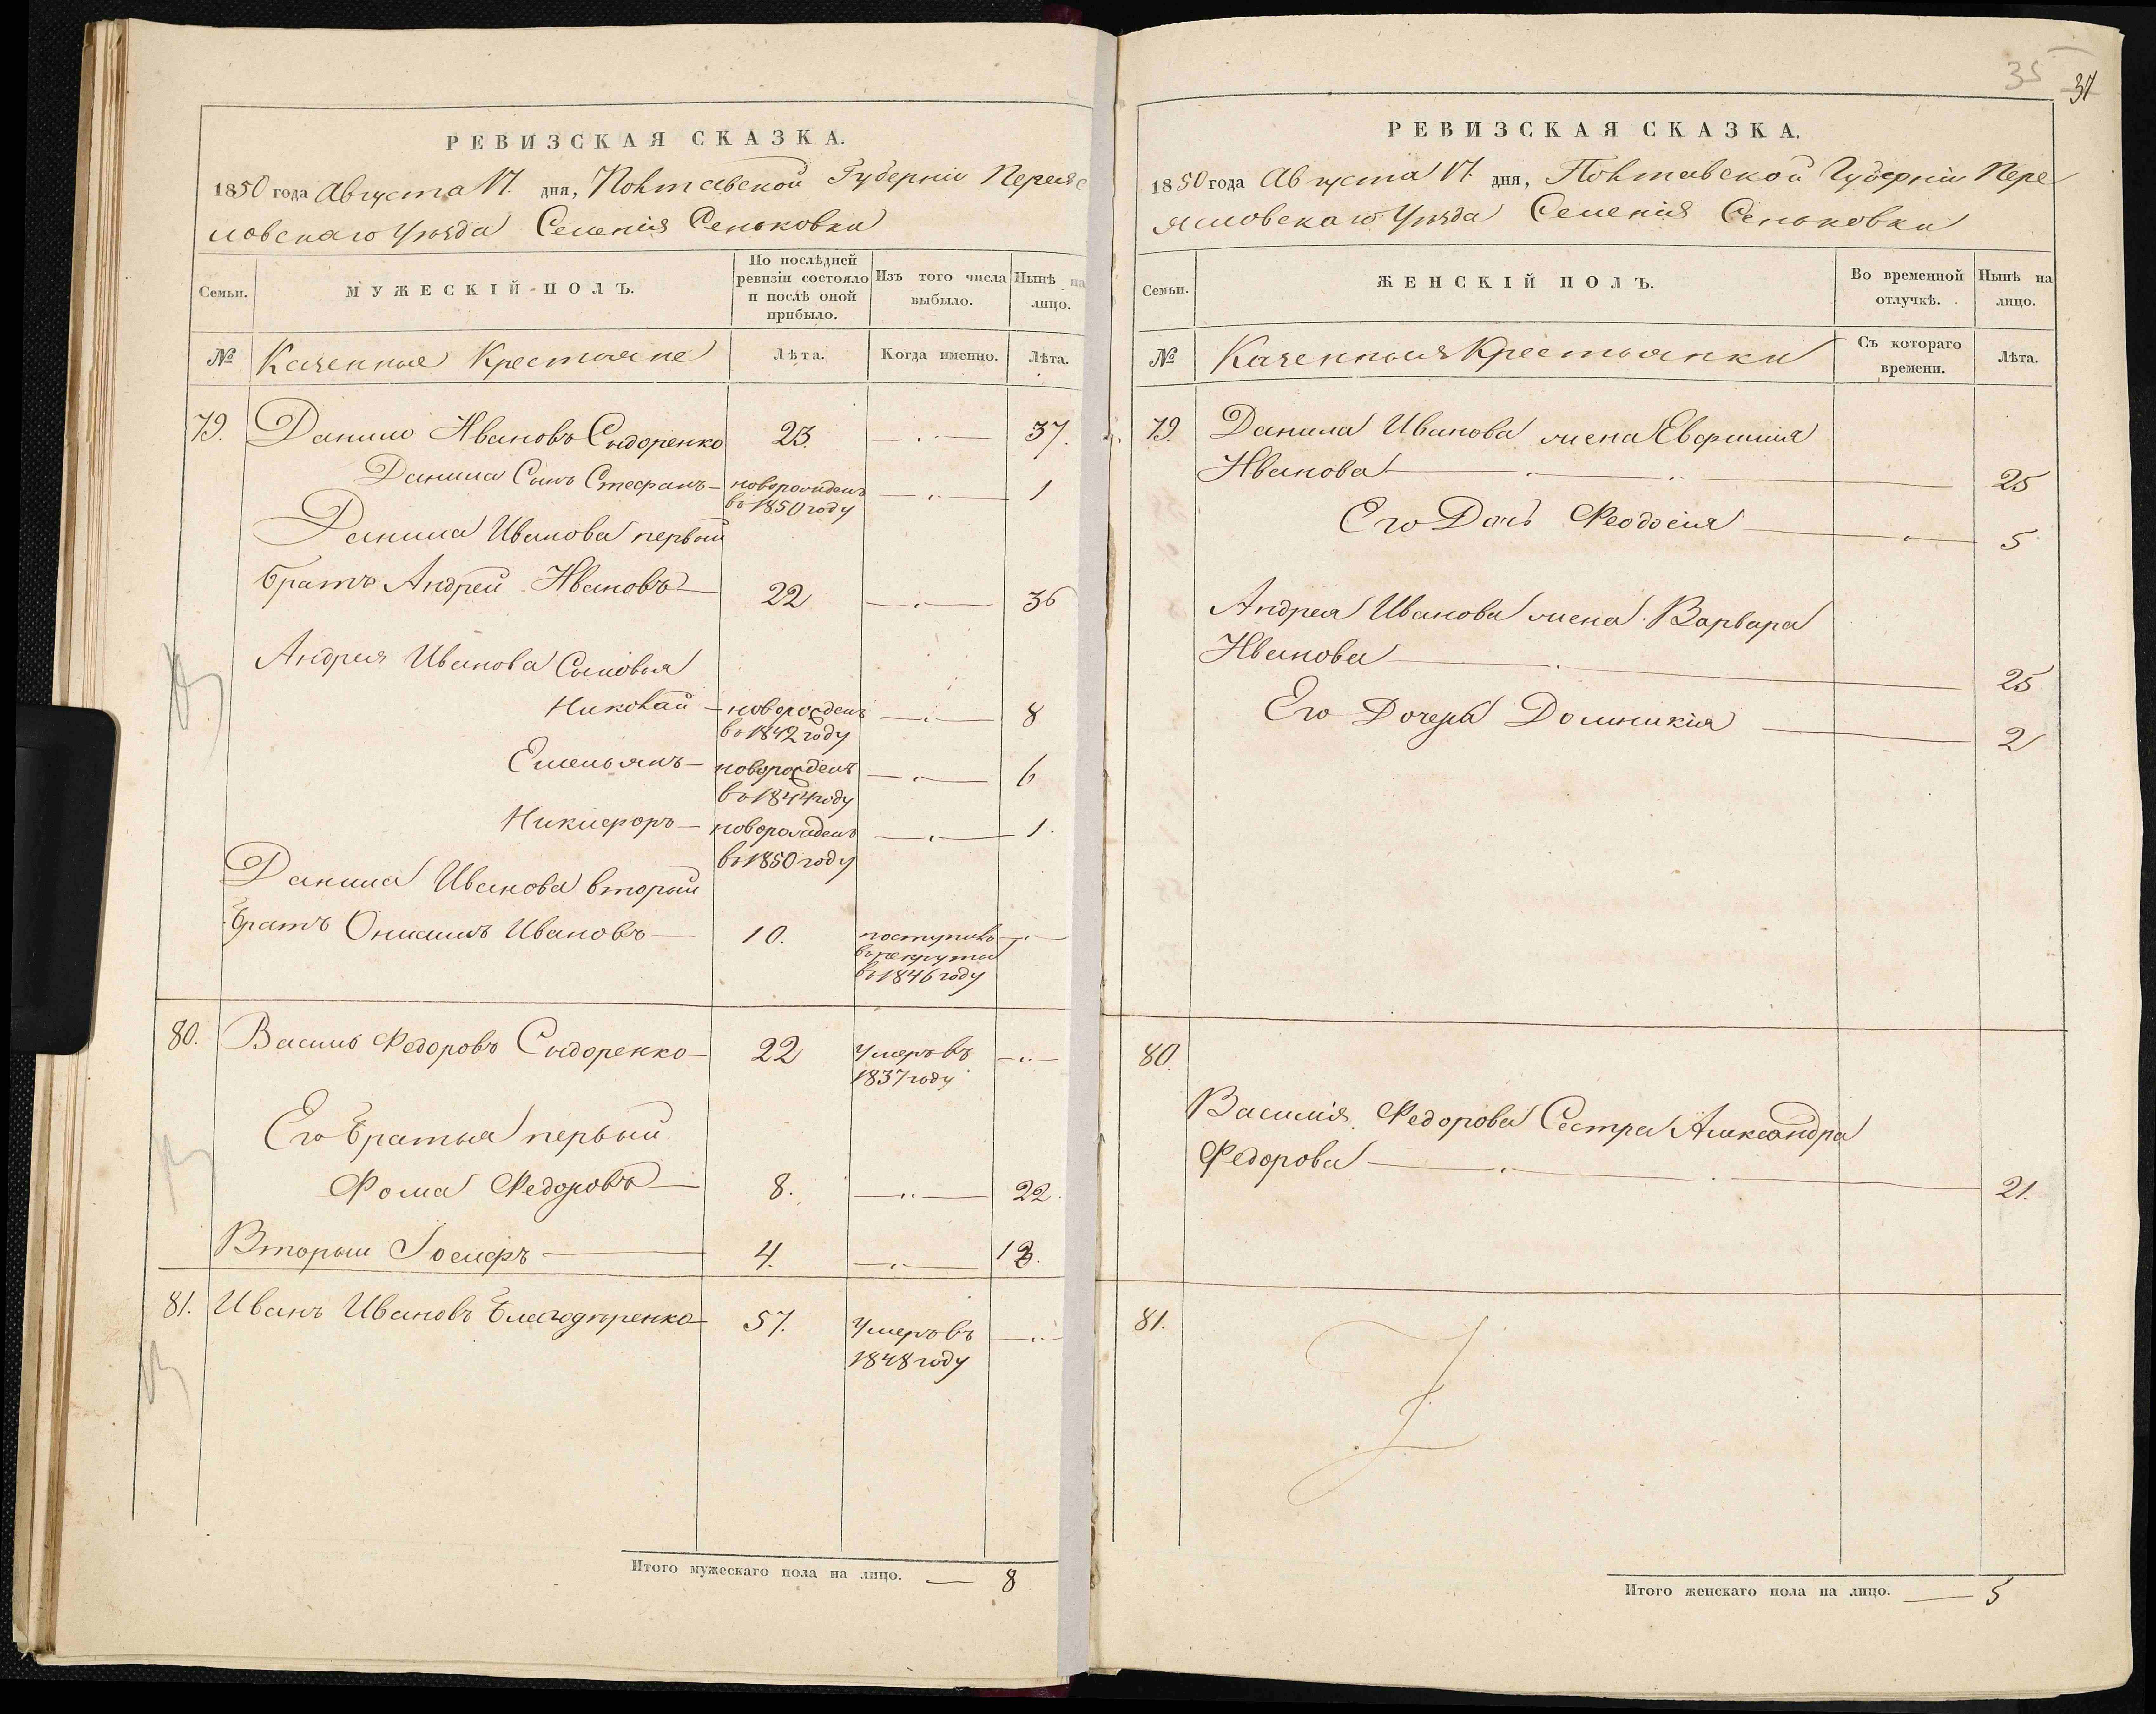 РЕВИЗСКАЯ СКАЗКА.
1850 года Августа 17. дня, Полтавской Губерніи Переяс
ловскаго Уезда Селенія Сеньковки
Семьи.
МУЖЕСКІЙ-ПОЛЪ.
По послѣдней ревизіи состояло и послѣ оной прибыло.
Изъ того числа выбыло.
Нынѣ на лицо.
№
Казенные Крестьяне
Лѣта.
Когда именно.
Лѣта.
79. Данило Ивановъ Сидоренко 23. 37.
Данила Сынъ Стефанъ новорожденъ 1
въ 1850 году
Данила Иванова первый
братъ Андрей Ивановъ 22 36
Андрея Иванова Сыновья
Николай новорожденъ 8
въ 1842 году
Емельянъ новорожденъ 6
въ 1844 году
Никифоръ новорожденъ 1.
въ 1850 году
Данила Иванова вторый
братъ Онисимъ Ивановъ 10. поступилъ
в рекруты
въ 1846 году
80. Василь Федоровъ Сидоренко 22 Умеръ въ
1837 году
Его братья первый
Фома Федоровъ 8. 22.
Вторый Іосифъ 4.
81. Иванъ Ивановъ Благодиренко 57. Умеръ въ
1848 году
Итого мужескаго пола на лицо. 8
35 37
РЕВИЗСКАЯ СКАЗКА.
1850 года Августа 17. дня, Полтавской Губерніи Пере
ясловскаго Уезда Селенія Сеньковки
Семьи.
ЖЕНСКІЙ ПОЛЪ.
Во временной отлучкѣ.
Нынѣ на лицо.
№
Казенныя Крестьянки
Съ котораго времени.
Лѣта.
79. Данила Иванова жена Евфимия
Иванова 25
Его Дочь Феодосия 5
Андрея Иванова жена Варвара
Иванова 25
Его Дочерь Домникія 2
80.
Василія Федорова Сестра Александра
Федорова 21.
81.
Итого женскаго пола на лицо. 5